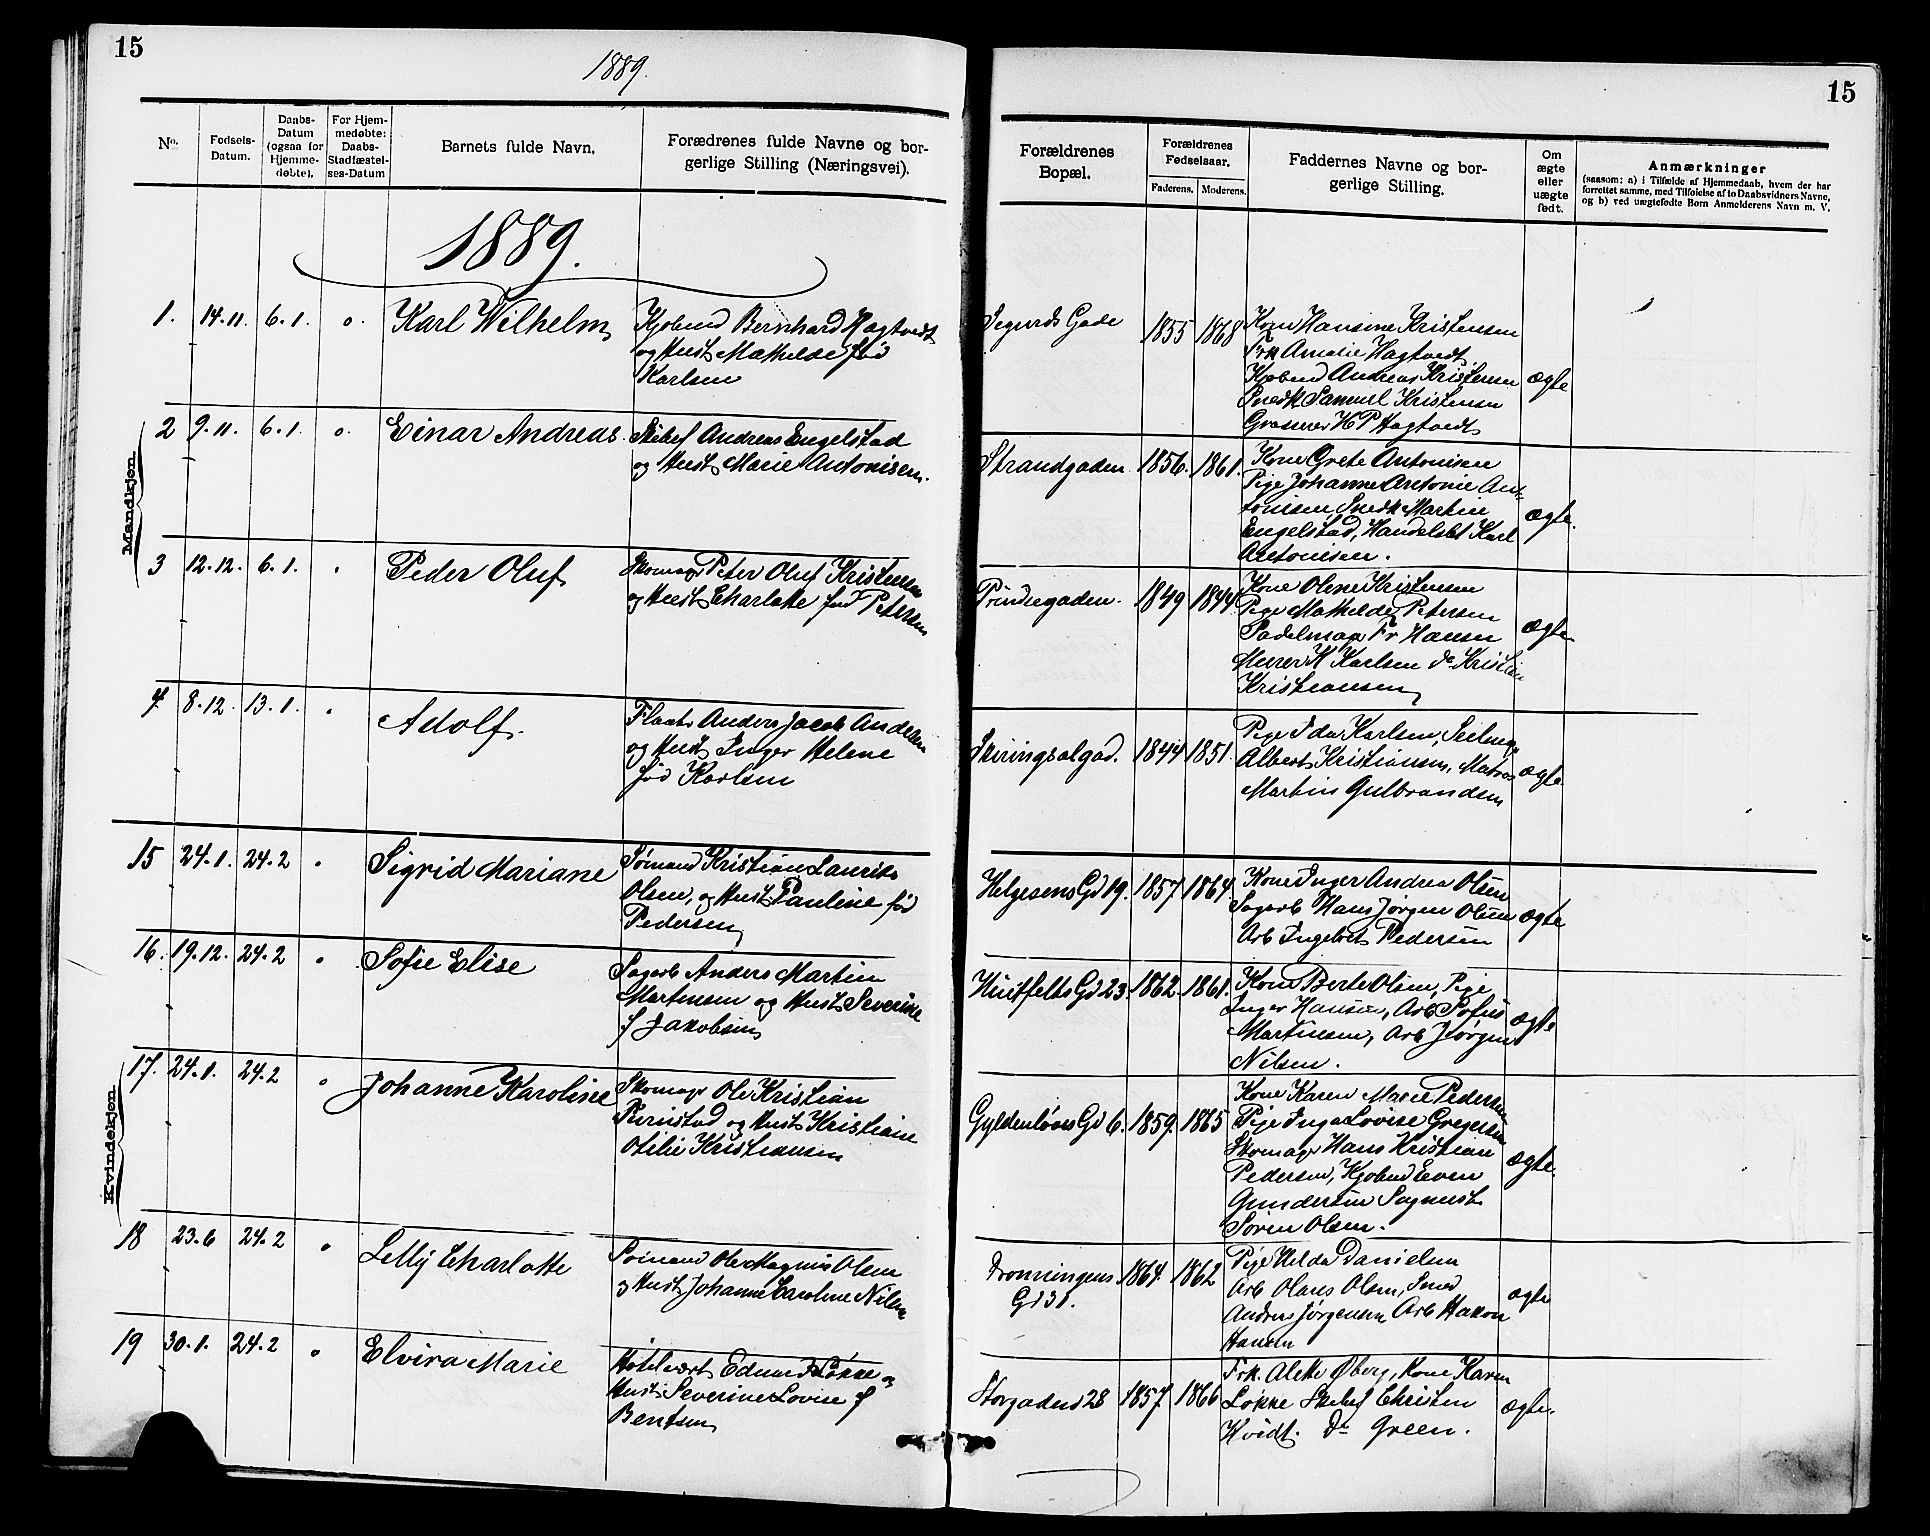 15
1889.
15
No.
Fødsels-Datum.
Daabs-Datum (ogsaa for Hjemme-døbte).
For Hjem-medøbte: Daabs-Stadfæstel-ses-Datum
Barnets fulde Navn.
Forædrenes fulde Navne og bor-
gerlige Stilling (Næringsvei).
Forældrenes
Bopæl.
Forældrenes
Fødselsaar.
Faderens. Moderens.
Faddernes Navne og bor-
gerlige Stilling.
Om
ægte
eller
uægte
født.
Anmærkninger
(saasom: a) i Tilfælde af Hjemmedaab, hvem der har
forrettet samme, med Tilføielse af to Daabsvidners Navne,
og b) ved uægtefødte Børn Anmelderens Navn m. V.
1889.
Mandkjøn
1. 14.11. 6.1. o. Karl Wilhelm
Kjøbmd Bernhard Hagtvedt
og Hust Mathilde fød
Karlsen
Sigurds Gade 1855 1868
Kone Hansine Kristensen
Frk Amalie Hagtvedt
Kjøbmd Andreas Kristensen
Snedk Samuel Kristensen
H P Hagtvedt
ægte
2 9.11. 6.1. o. Einar Andreas
Skibsf Andreas Engelstad
og Hust Marie Antonisen.
Strandgaden 1856. 1861.
Kone Grete Antonisen
Pige Johanne Antonie Ant-
tonisen, Snedk Martin
Engelstad, Handelsbt Karl
Antonisen.
ægte.
3 12.12. 6.1. Peder Oluf
Skomagr Peter Oluf Kristensen
og Hust Charlotte fød Petersen
Prindsegaden. 1849 1844.
Kone Olene Kristensen
Pige Mathilde Petersen
Sadelmagr Fr Hansen
Murer K Karlsen Do Kristian
Kristiansen
ægte
4 8.12. 13.1. Adolf.
Flaats Anders Jacob Andersen
og Hust Inger Helene
fød Karlsen
Skiringsalgad. 1844 1851.
Pige Ida Karlsen, Seilmagr
Albert Kristiansen, Matros
Martin Gulbrandsen
ægte.
Kvindekjøn
15 24.1. 24.2 Sigrid Mariane
Sømand Kristian Laurits
Olsen, og Hust Pauline fød
Pedersen
Helgesens Gd 19. 1857. 1864.
Kone Inger Andrea Olsen
Sagarb Hans Jørgen Olsen
Arb Ingebret Pedersen
ægte
16. 19.12. 24.2 Sofie Elise
Sagarb Anders Martin
Martinsen og Hust Severine
f Jakobsen
Huitfelts Gd 23. 1862. 1861.
Kone Berte Olsen, Pige
Inger Hansen, Arb Sofus
Martinsen, Arb Jørgen
Nilsen.
ægte
17. 24.1. 24.2 Johanne Karoline
Skomagr Ole Kristian
og Hust Kristiane
Otilie Kristiansen
Gyldenløves Gd 6. 1859. 1865
Kone Karen Marie Pedersen
Pige Inga Lovise Gregersen
Skomagr Hans Kristian
Pedersen, Kjøbmd Even
Gundersen Sagmest
Søren Olsen.
ægte.
18 23.6 24.2 Lelly Charlotte
Sømand Ole Magnus Olsen
og Hust Johanne Caroline Nilsen
Dronningens
Gd 31. 1864. 1862
Pige Hilda Danielsen
Arb Olaus Olsen, Smed
Anders Jørgensen Arb Hakon
Hansen
ægte
19 30.1. 24.2 Elvira Marie
Hotelvært Edvard Løkke og
Hust Severine Lovise f
Bentsen
Storgaden 28 1857. 1866
Frk. Alette Øberg, Kone Karen
Løkke Skibsf Christen
Hvidt. Do Green.
ægte.